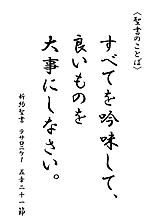 〈聖書のことば〉
すべてを吟味して、
良いものを
大事にしなさい。
新約聖書 テサロニケⅠ 五章二十一節